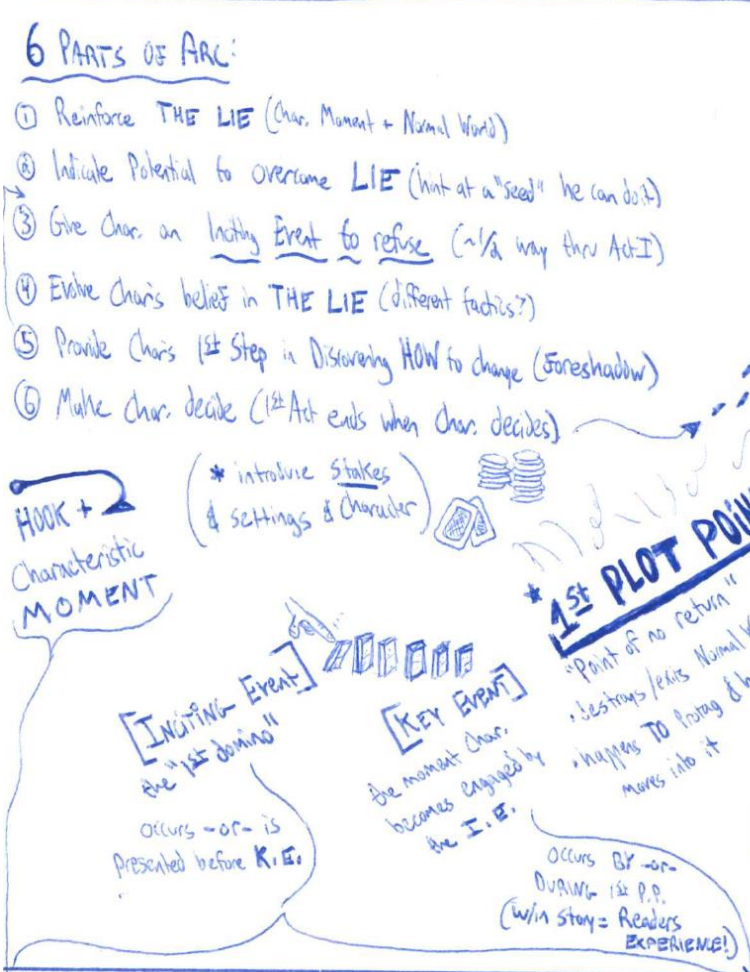 6 PARTS OF ARC:
① Reinforce THE LIE (Char. Moment + Normal World)
② Indicate Potential to overcome LIE (hint at a "seed" he can do it)
③ Give Char. an Inciting Event to refuse (~1/2 way thru Act I)
④ Evolve Char's belief in THE LIE (different tactics?)
⑤ Provide Char's 1st Step in Discovering HOW to change (foreshadow)
⑥ Make Char. decide (1st Act ends when Char. decides)
(* introduce Stakes
& settings & Character)
HOOK +
Characteristic
MOMENT
[INCITING Event]
the "1st domino"
occurs -or- is
presented before K.E.
[KEY EVENT]
the moment Char.
becomes engaged by
the I.E.
* 1st PLOT POIN
"Point of no return"
• destroys/exits Normal W
• happens TO Protag & h
moves into it
Occurs BY -or-
DURING 1st P.P.
(w/in Story = Readers
EXPERIENCE!)